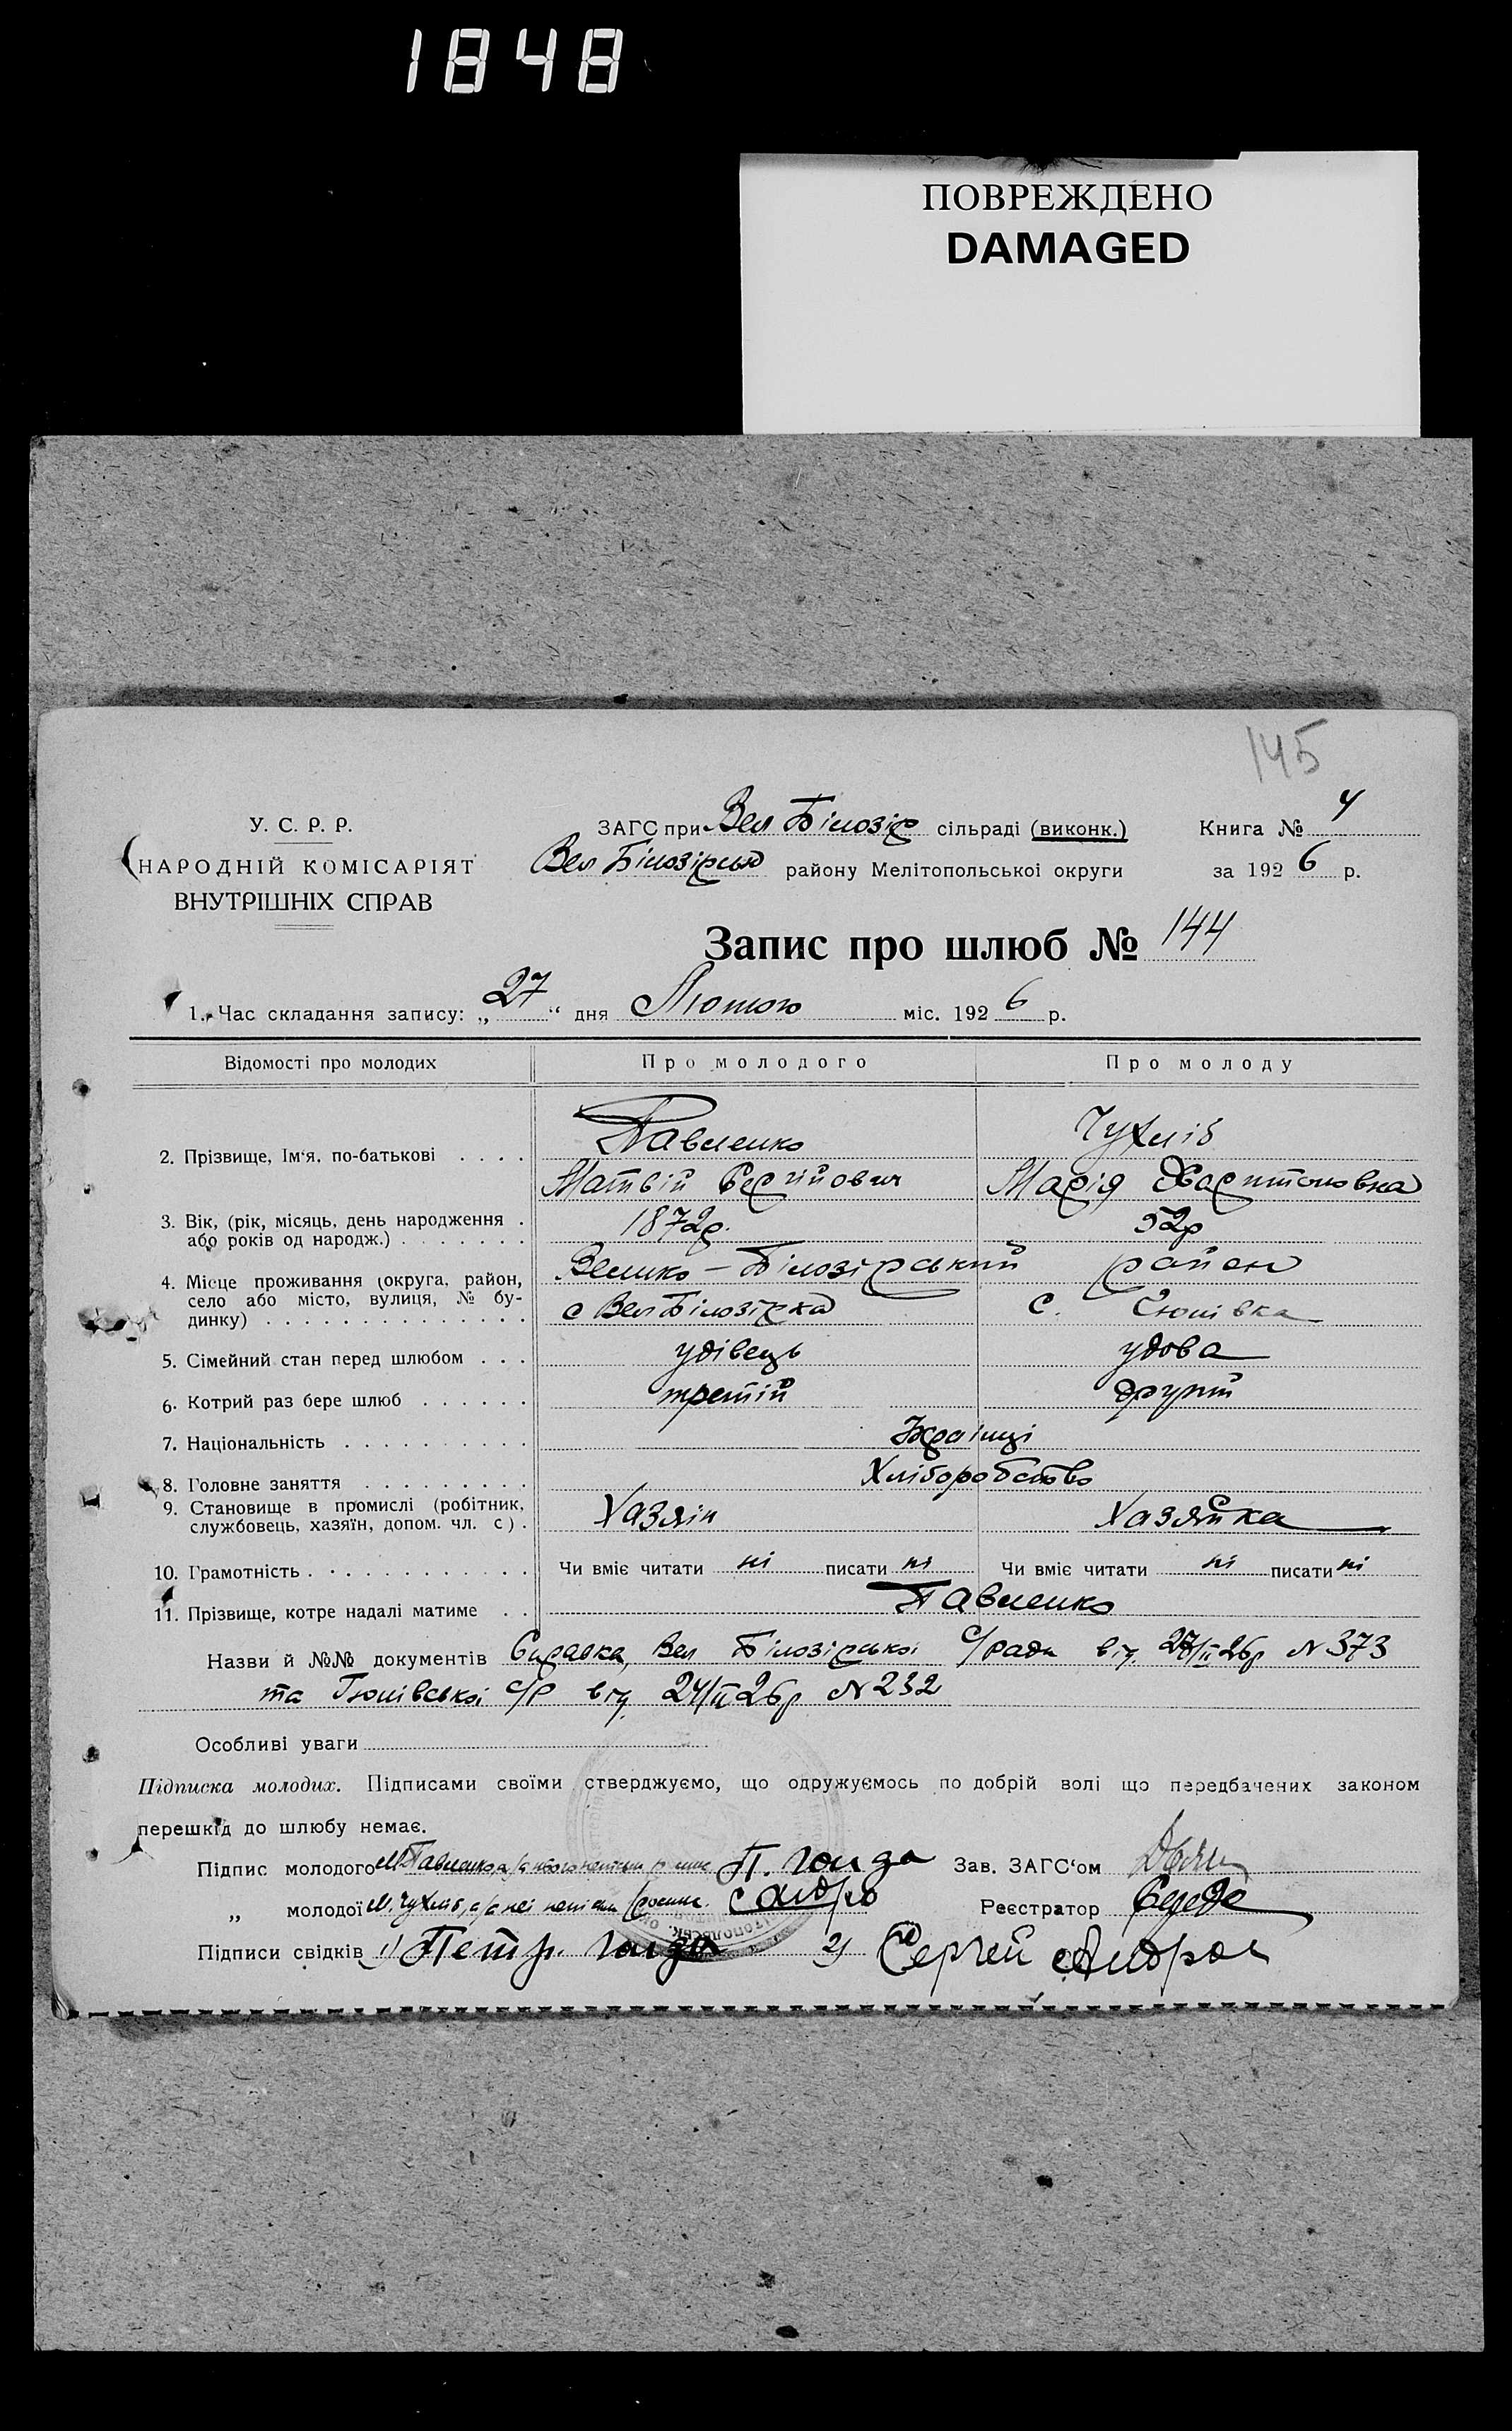 1848
ПОВРЕЖДЕНО
DAMAGED
145
У. С. Р. Р.
НАРОДНІЙ КОМІСАРІЯТ
ВНУТРІШНІХ СПРАВ
ЗАГС при Вел Білозір сільраді (виконк.)
Вел Білозірськ району Мелітопольської округи
Книга № 4
за 1926 р.
Запис про шлюб № 144
1. Час складання запису: „27“ дня Лютого міс. 1926 р.
Відомості про молодих Про молодого Про молоду
Павленко Чухлів
2. Прізвище, Ім‘я, по-батькові . . . .
Матвій Сергійович Марія Харитоновна
3. Вік, (рік, місяць, день народження .
або років од народж.) . . . . . . . 1872р. 52р
4. Місце проживання (округа, район, Велико-Білозірський район
село або місто, вулиця, № бу-
динку) . . . . . . . . . . . . . . с Вел Білозірка с.
5. Сімейний стан перед шлюбом . . . удівець удова
6. Котрий раз бере шлюб . . . . . . третій другий
7. Національність . . . . . . . . . . Українці
8. Головне заняття . . . . . . . . . Хліборобство
9. Становище в промислі (робітник,
службовець, хазяїн, допом. чл. с). Хазяін Хазяйка
10. Грамотність . . . . . . . . . . . Чи вміє читати ні писати ні Чи вміє читати ні писати ні
11. Прізвище, котре надалі матиме . . Павленко
Назви й №№ документів Справка, Вел Білозірської с/ради від 27/II 26р N 373
та с/р від 24/II 26р N 232
Особливі уваги
Підписка молодих. Підписами своїми стверджуємо, що одружуємось по добрій волі що передбачених законом
перешкід до шлюбу немає.
Підпис молодого М Павленко а за його П. Гонда Зав. ЗАГС‘ом
„ молодої М. Чухлів, а за неі С Андро Реєстратор Середа
Підписи свідків 1) Петр. Гонда 2) Сергей